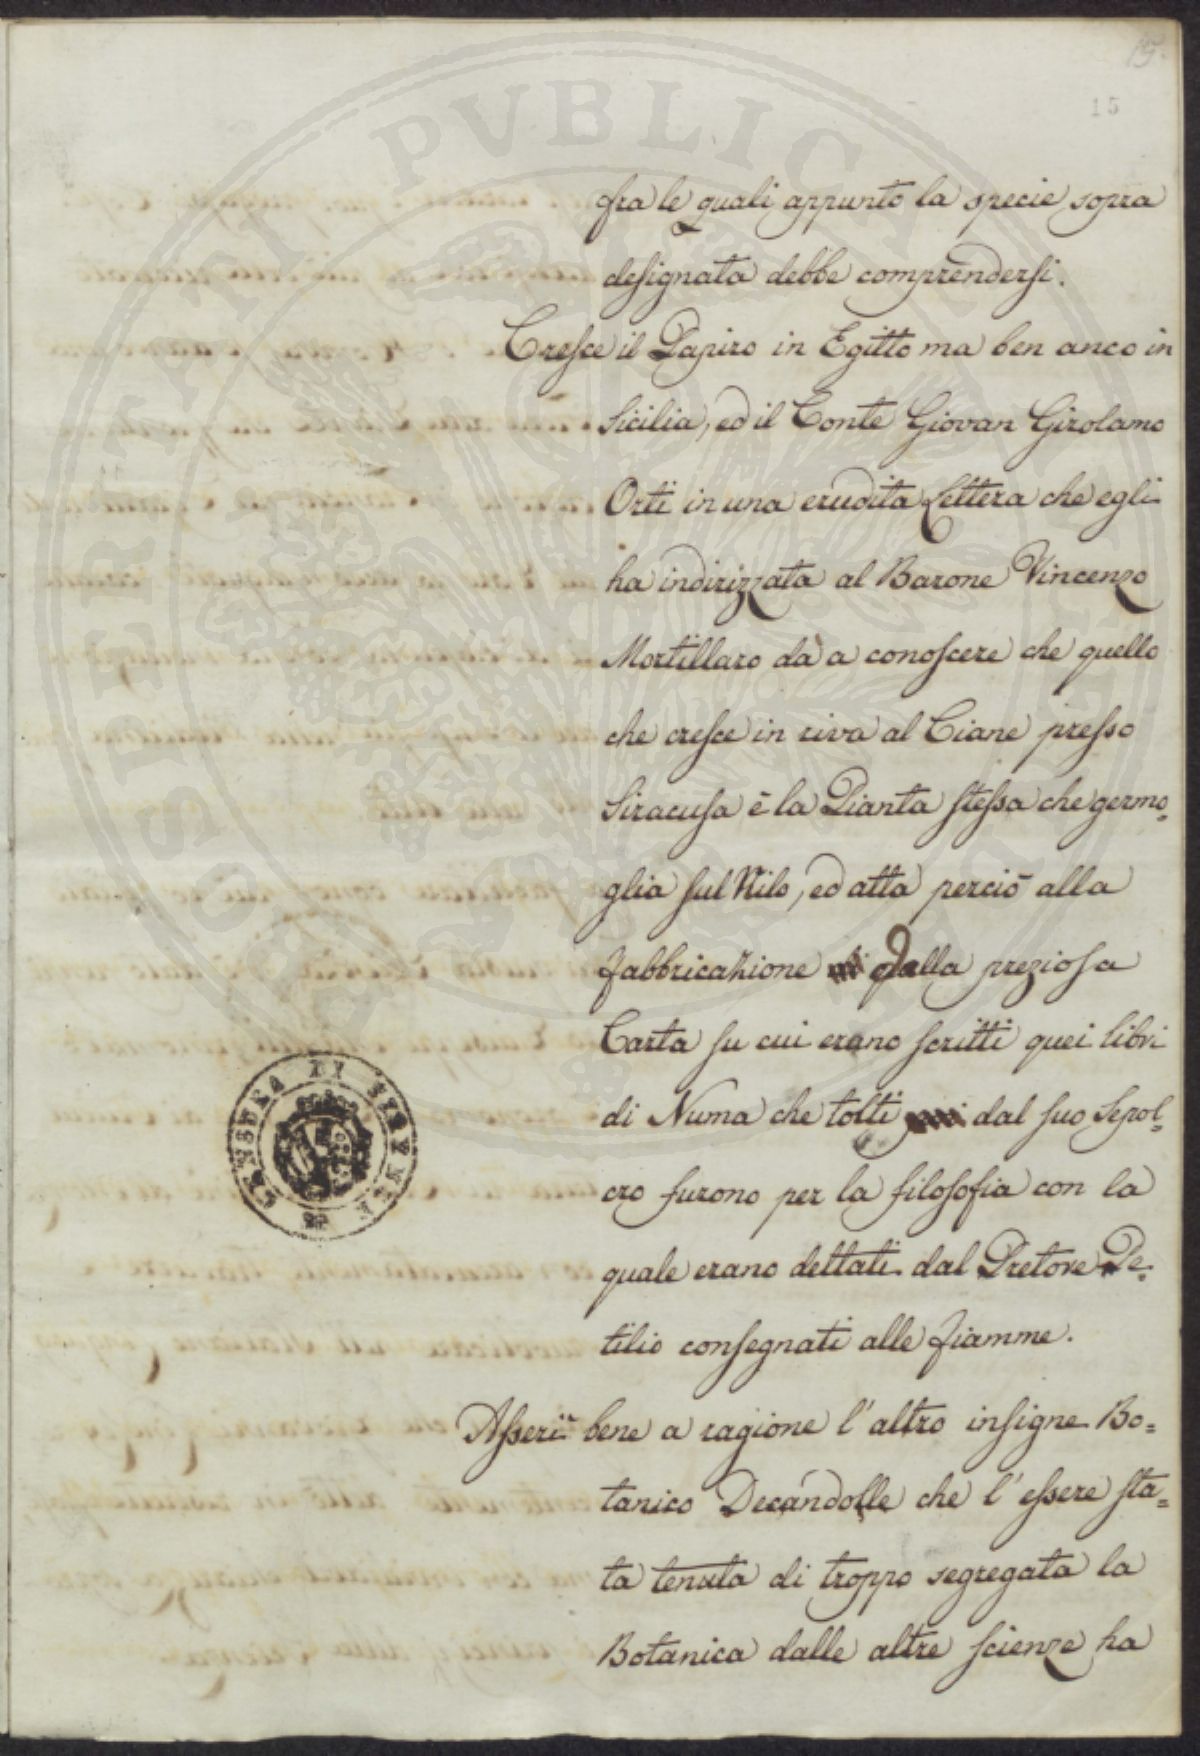 15.
15
fra le quali appunto la specie sopra
designata debbe comprendersi.
Cresce il Papiro in Egitto ma ben anco in
Sicilia, ed il Conte Giovan Girolamo
Orti in una erudita Lettera che egli
ha indirizzata al Barone Vincenzo
Mortillaro dà a conoscere che quello
che cresce in riva al Ciane presso
Siracusa è la Pianta stessa che germo=
glia sul Nilo, ed atta perciò alla
fabbricazione della preziosa
Carta su cui erano scritti quei libri
di Numa che tolti dal suo Sepol=
cro furono per la filosofia con la
quale erano dettati dal Pretore Pe=
tilio consegnati alle fiamme.
Asserì bene a ragione l'altro insigne Bo=
tanico Decandolle che l'essere sta=
ta tenuta di troppo segregata la
Botanica dalle altre scienze ha
CENSURA DI
PVBLICAE
PROSPERITATI